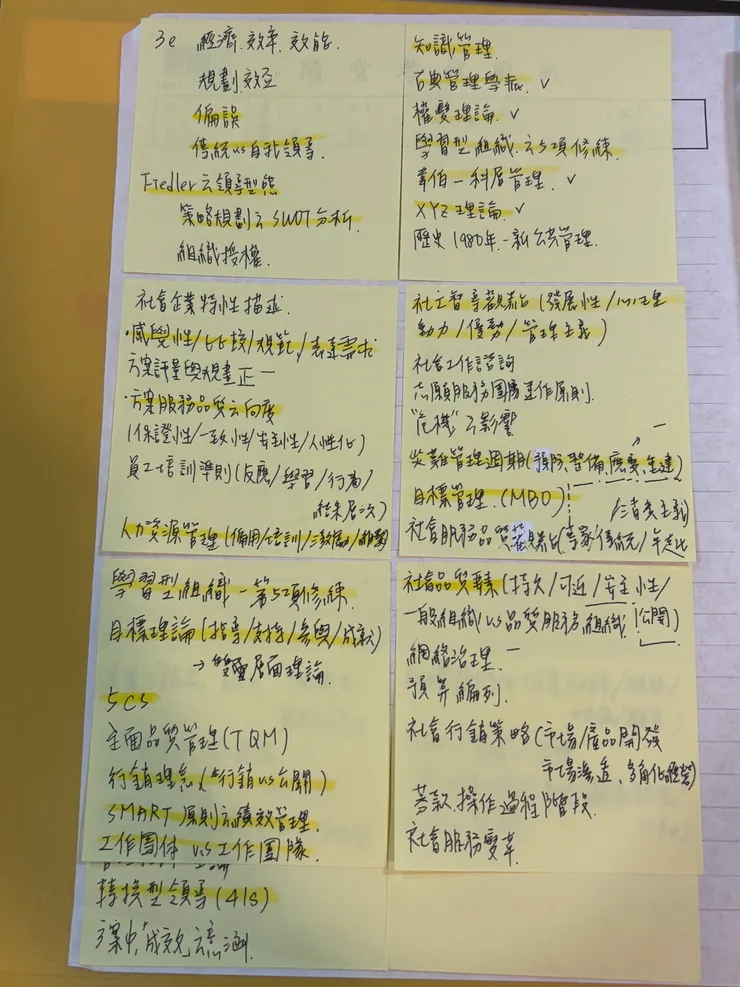 3e 經濟.效率.效能.
規劃.效益
偏誤
傳統vs自我領導.
Fiedler之領導型態
策略規劃之SWOT分析.
組織授權.
知識管理.
古典管理學派. ✓
權變理論. ✓
學習型組織.之5項修練.
韋伯-科層管理. ✓
XYZ理論. ✓
歷史1980年.-新公共管理.
社會企業特性描述.
·感覺性/比較/規範/表達需求
方案評量與規畫
·方案服務品質之向度
(保證性/一致性/
員工培訓準則(反應/學習/行為/
結果層次)
人力資源管理(僱用/培訓/激勵/維繫)
社工督導觀點(發展性/心理
動力/優勢/管理主義)
社會工作諮詢
志願服務團隊運作原則.
"危機"之影響
災難管理週期(預防.整備.應變.重建)
目標管理.(MBO)
/消費主義)
社會服務品質觀點(專家傳統/
學習型組織-第5項修練.
目標理論(指導/支持/參與/成就)
→雙層面理論.
5CS
全面品質管理(TQM)
行銷理念(行銷vs公關)
SMART原則之績效管理.
工作團体 vs 工作團隊.
轉換型領導(4Is)
方案中「成效」之意涵.
社會品質要素(持久/可近/
一般組織vs品質服務組織
網絡治理.
預算編列.
社會行銷策略(市場/產品開發
市場滲透、多角化經營)
募款.操作過程階段.
社會服務變革.